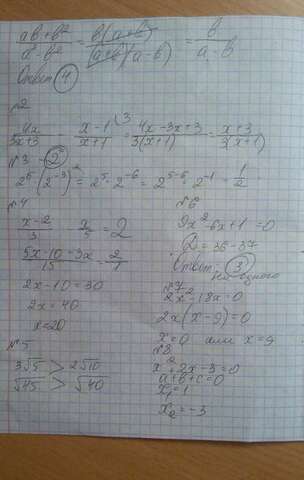 (ab + b²)/(a² - b²) = b(a+b)/((a+b)(a-b)) = b/(a - b)
Ответ 4
№2
4x/(3x+3) - (x-1)/(x+1) \3 = (4x-3x+3)/(3(x+1)) = (x+3)/(3(x+1))
№3 - 2
2⁵(2⁻³)² = 2⁵·2⁻⁶ = 2⁵⁻⁶ = 2⁻¹ = 1/2
№4
(x-2)/3 - x/5 = 2
(5x-10-3x)/15 = 2/1
2x-10=30
2x=40
x=20
№5
3√5 > 2√10
√45 > √40
№6
9x²-6x+1=0
D=36-37
Ответ 3
ни одного
№7
2x²-18x=0
2x(x-9)=0
x=0 или x=9
№8
x²+2x-3=0
a+b+c=0
x₁=1
x₂=-3